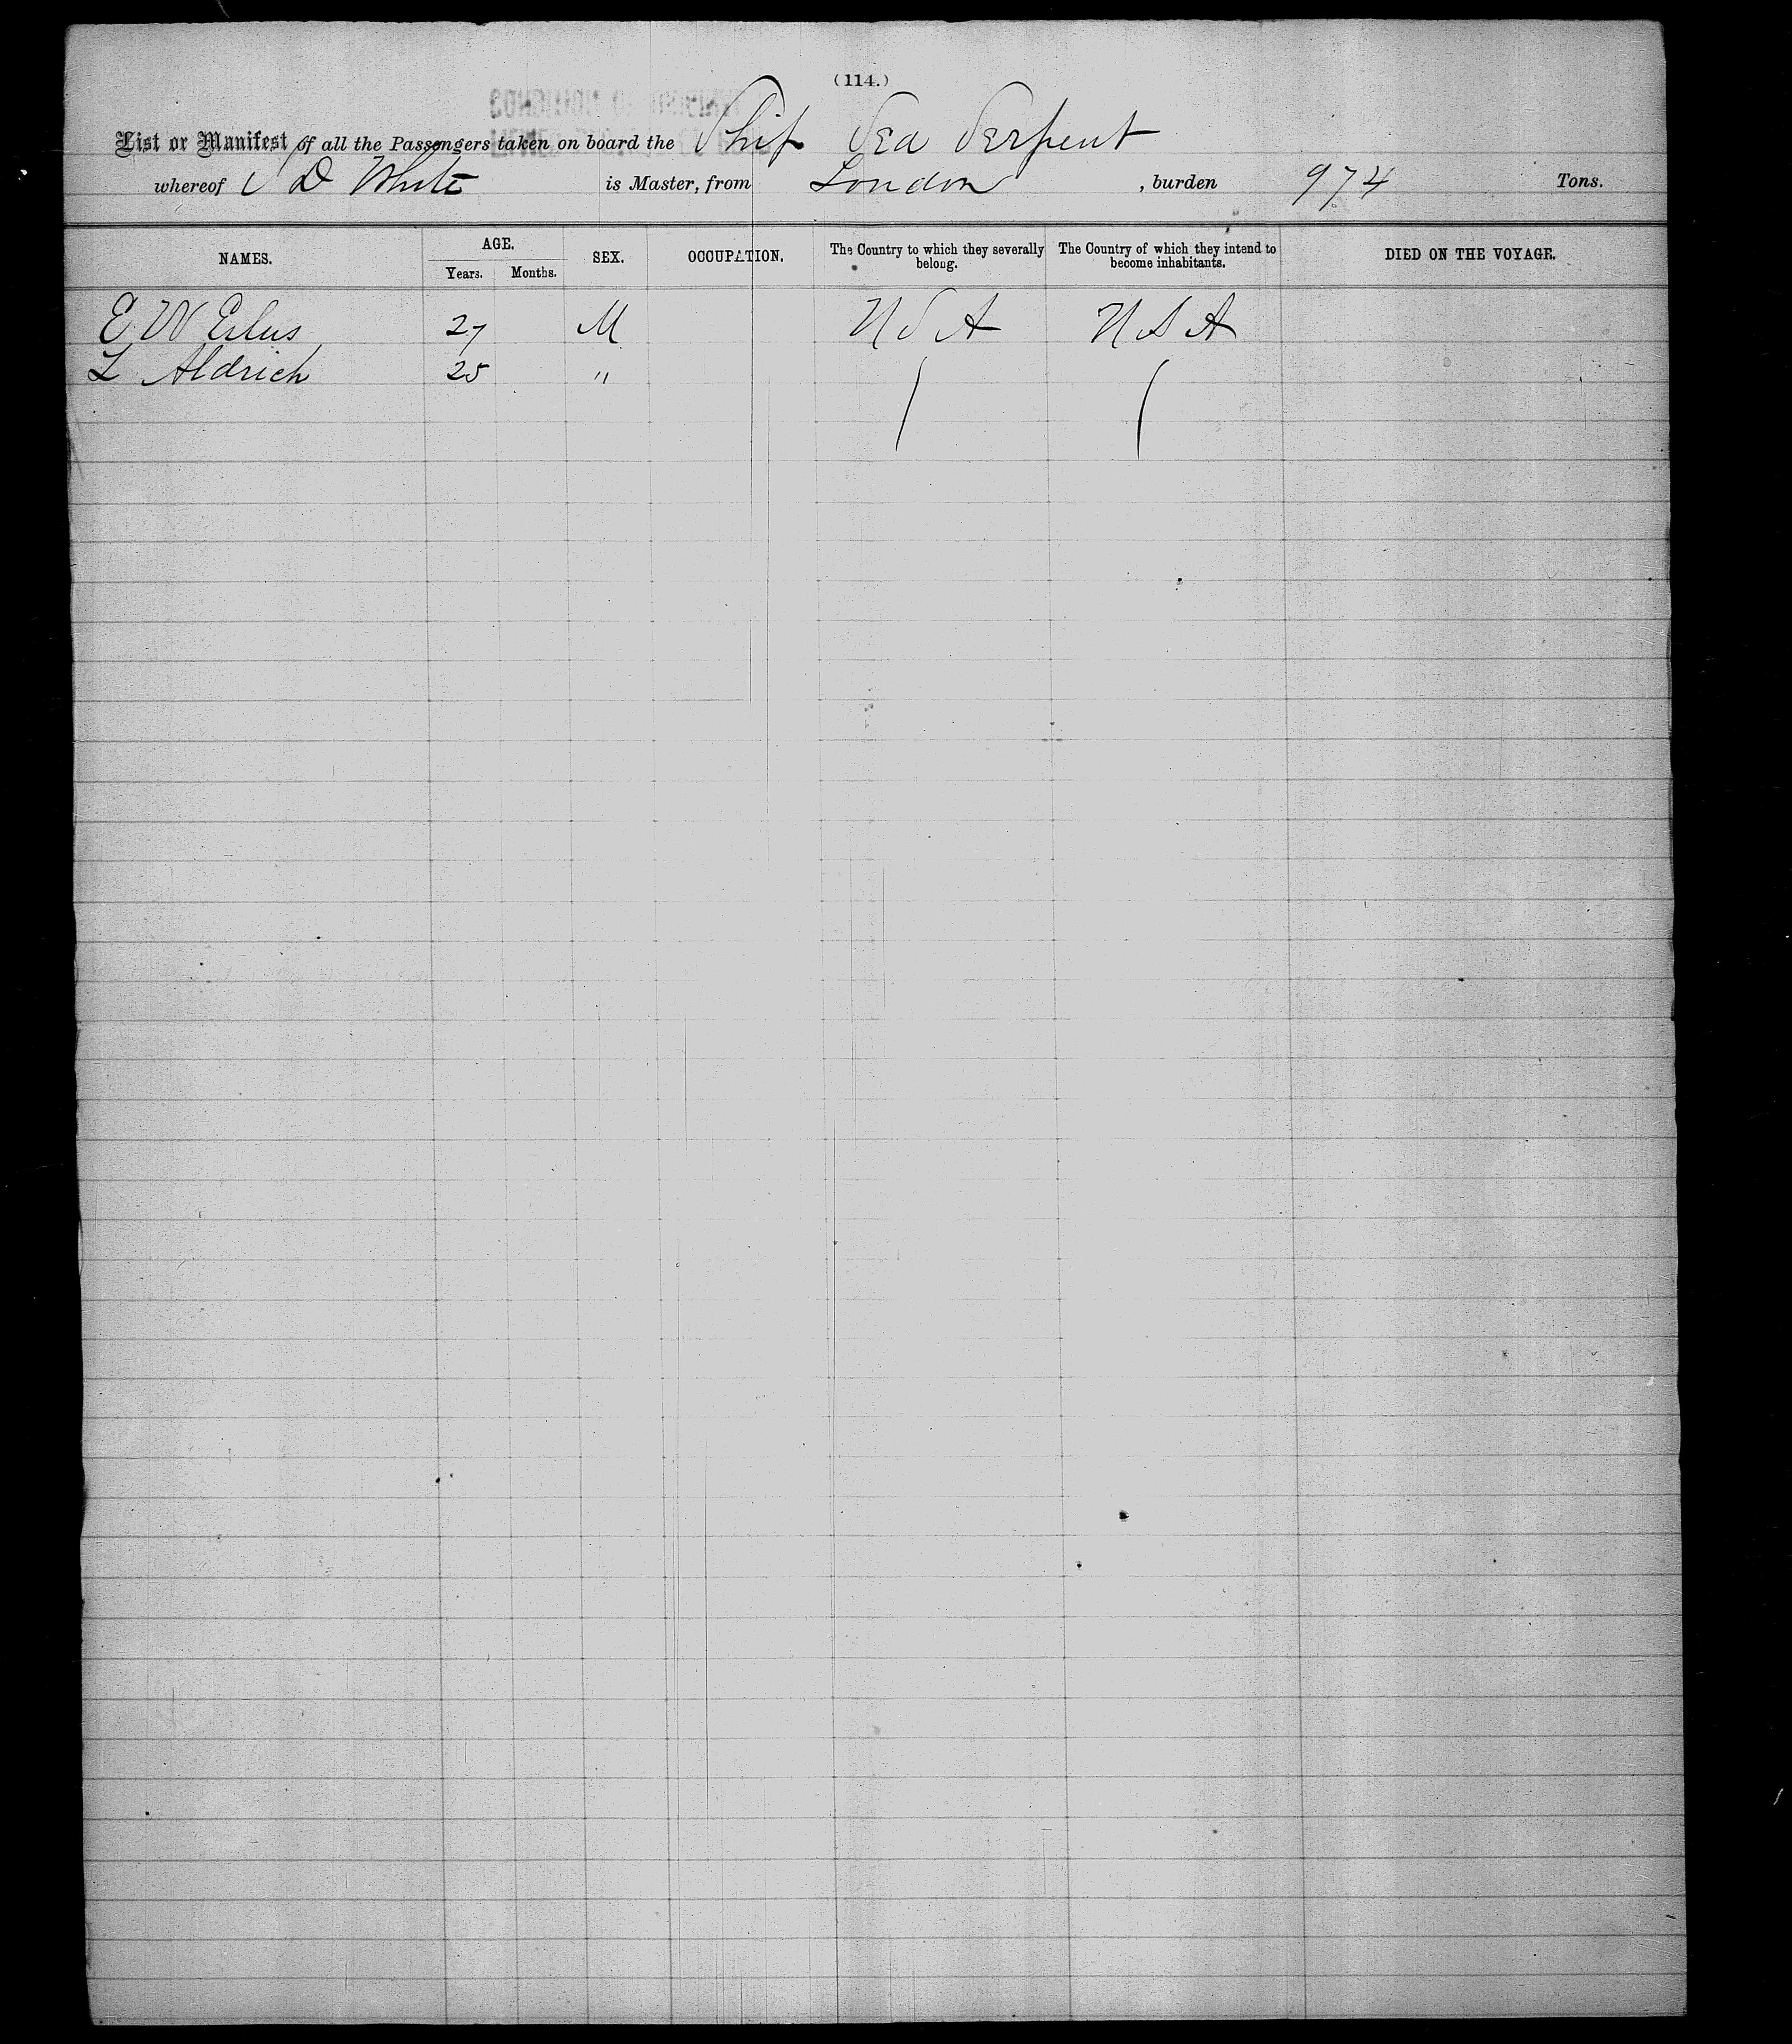 (114.)
List or Manifest of all the Passengers taken on board the Ship Sea Serpent
whereof D White is Master, from London, burden 974 Tons.
NAMES. AGE. Years. Months. SEX. OCCUPATION. The Country to which they severally belong. The Country of which they intend to become inhabitants. DIED ON THE VOYAGE.
E W 27 M U S A U S A
L Aldrich 25 "